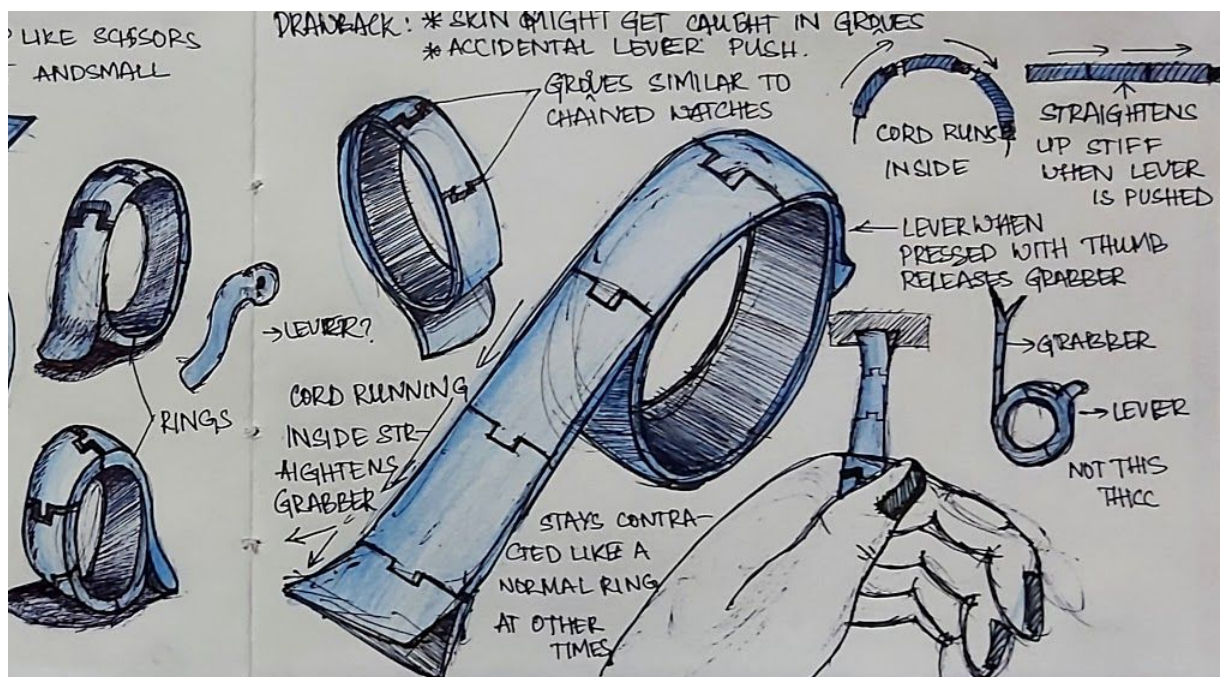 LIKE SCISSORS
ANDSMALL
DRAWBACK: * SKIN MIGHT GET CAUGHT IN GROVES
* ACCIDENTAL LEVER PUSH.
GROVES SIMILAR TO
CHAINED WATCHES
CORD RUNS
INSIDE
STRAIGHTENS
UP STIFF
WHEN LEVER
IS PUSHED
LEVER WHEN
PRESSED WITH THUMB
RELEASES GRABBER
LEVER?
RINGS
CORD RUNNING
INSIDE STR-
AIGHTENS
GRABBER
GRABBER
LEVER
NOT THIS
THICC
STAYS CONTRA-
CTED LIKE A
NORMAL RING
AT OTHER
TIMES